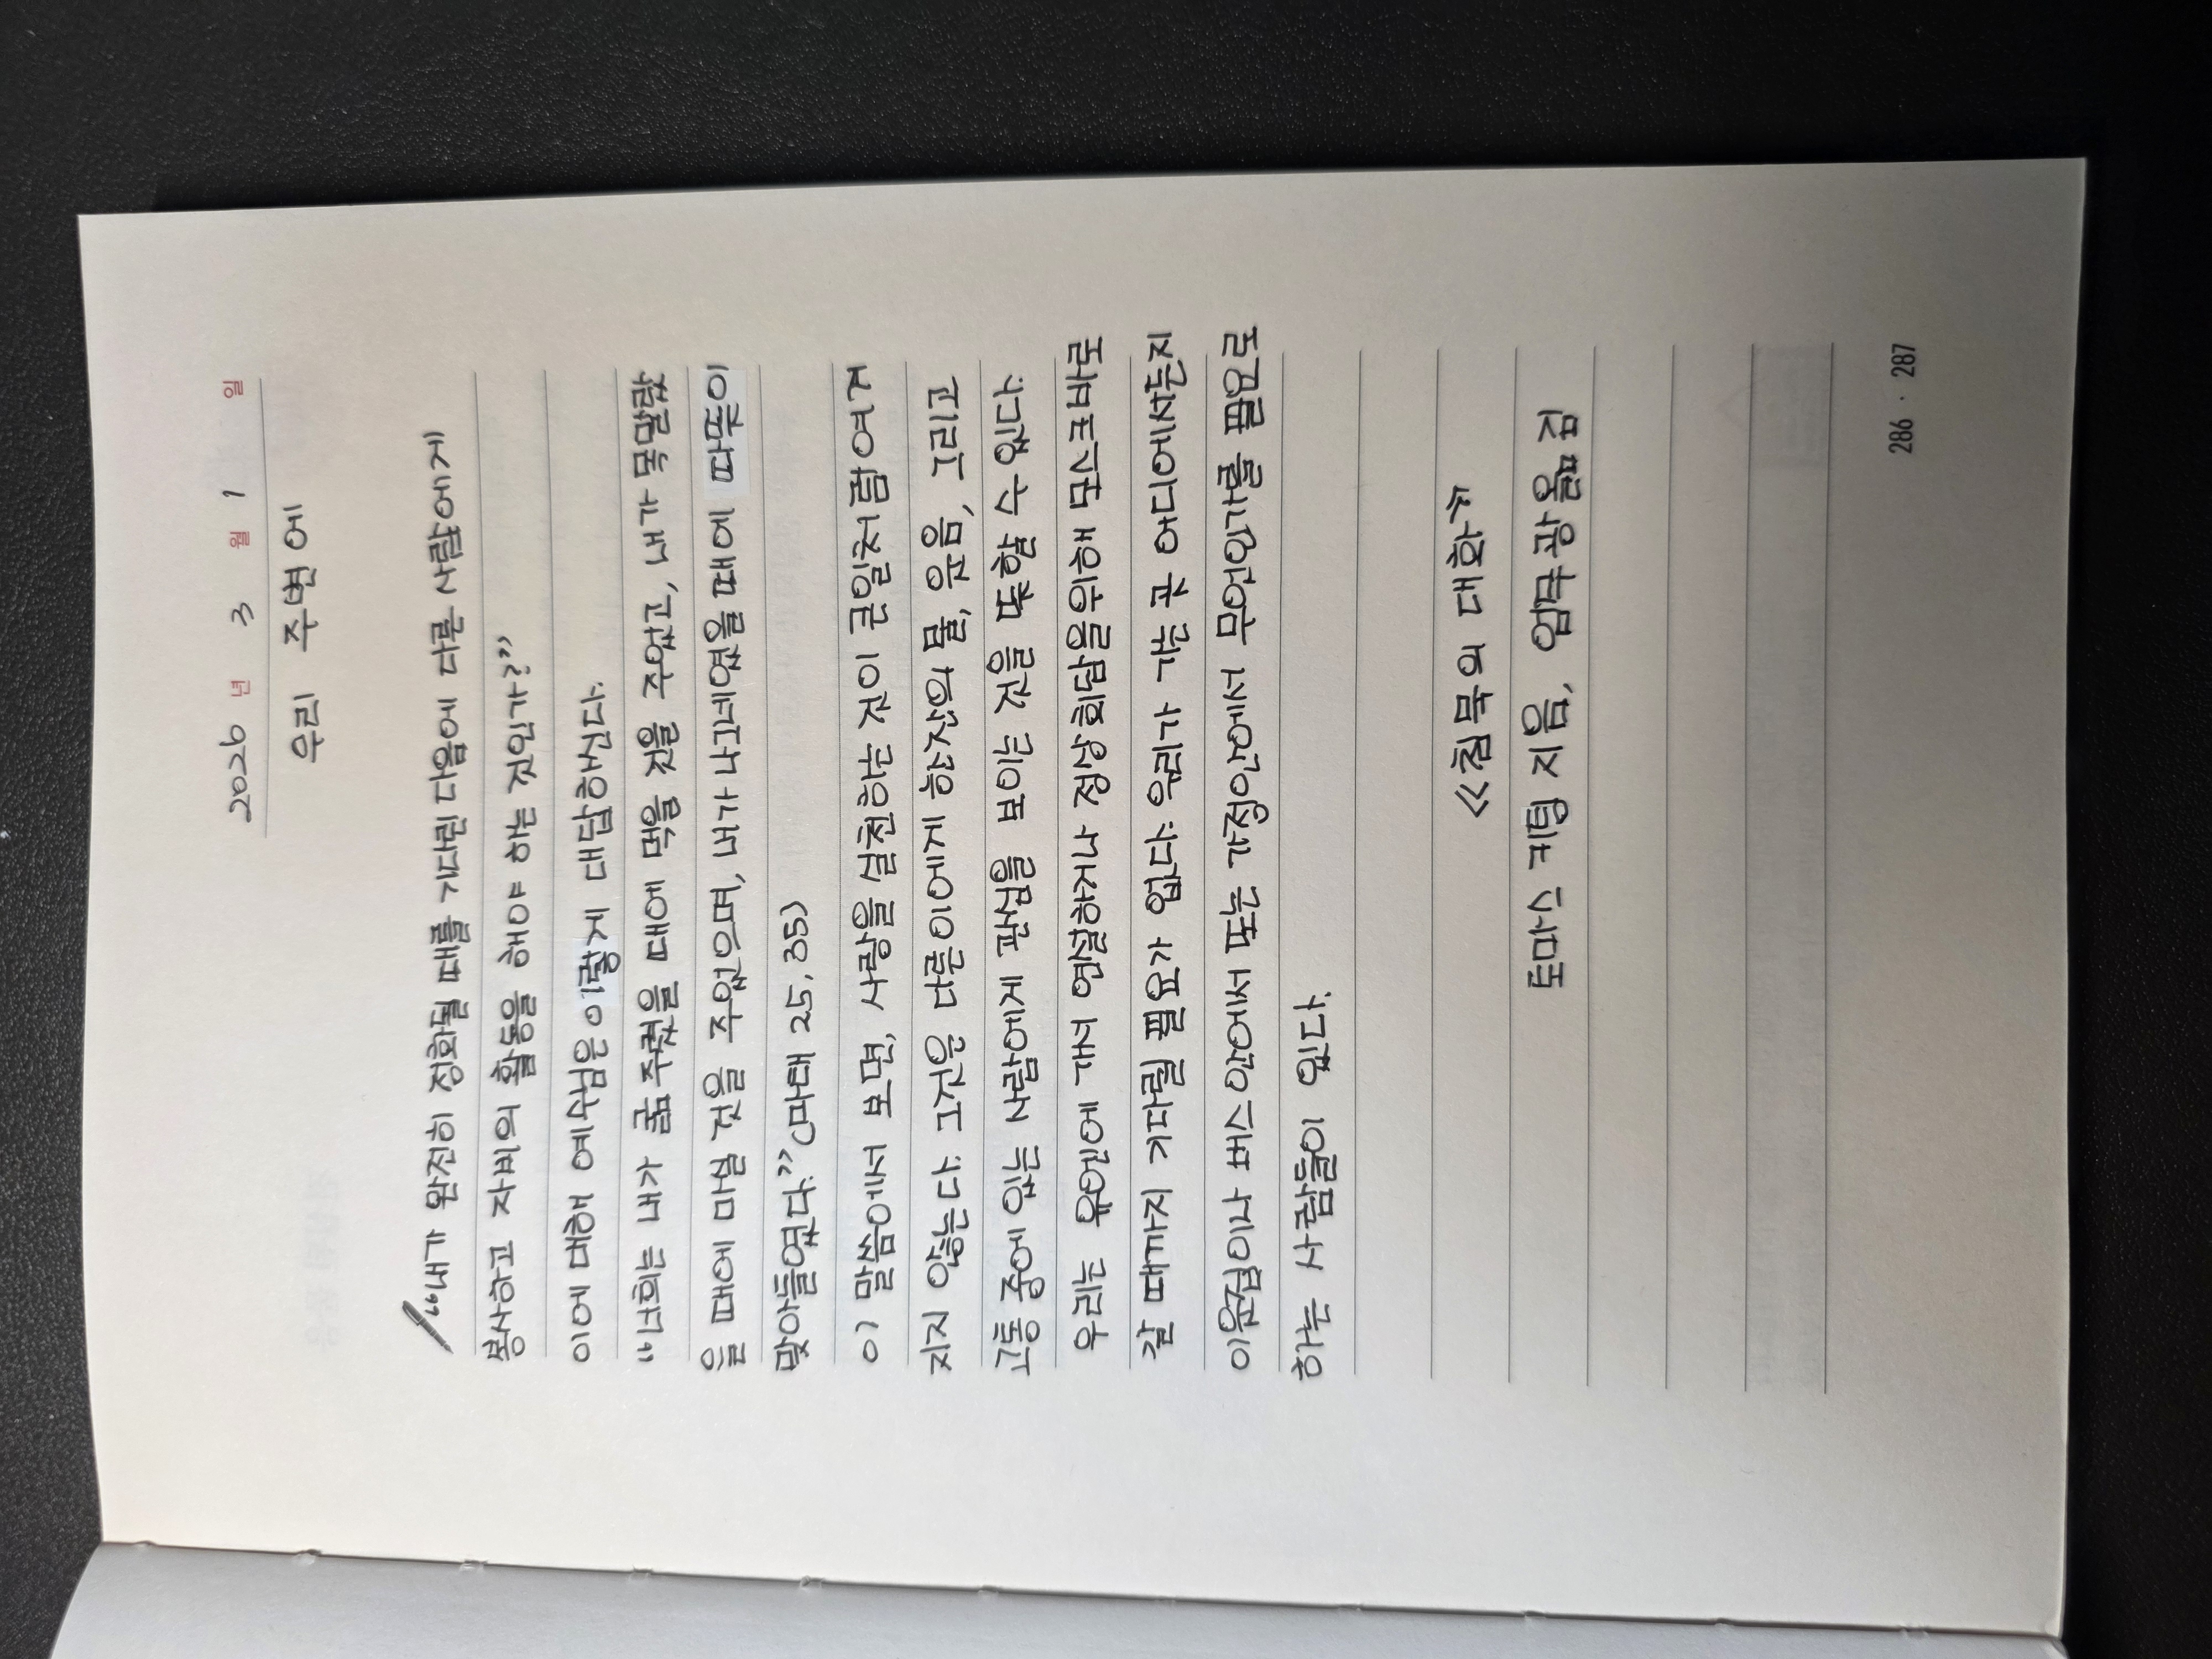 2026 년 3 월 1 일
우리 주변에
“내가 완전히 정화될 때를 기다린 다음에 다른 사람에게
봉사하고 자비의 활동을 해야 하는 것인가?”
이에 대해 예수님은 이렇게 대답하신다.
“너희는 내가 굶주렸을 때에 먹을 것을 주었고, 내가 목말랐
을 때에 마실 것을 주었으며, 내가 나그네였을 때에 따뜻이
맞아들였다.” (마태 25, 35)
이 말씀에서 보면, 사랑을 실천하는 것이 큰일처럼 여겨
지지 않는다. 그것은 다른이에게 한잔의 물, 웃음, 그리고
고통 중에 있는 사람에게 관심을 보이는 것을 뜻할 수 있다.
우리는 유엔에 가서 연설하거나 정상회담을위해 모스크바로
갈 때까지 기다릴 필요가 없다. 우리가 가는 곳 어디에서든지
이웃집이나 버스안에서 또는 가정안에서 무언인가를 필요로
하는 사람들이 있다.
《침묵의 대화》
토마스 키팅 지음, 엄무광 옮김
286 · 287